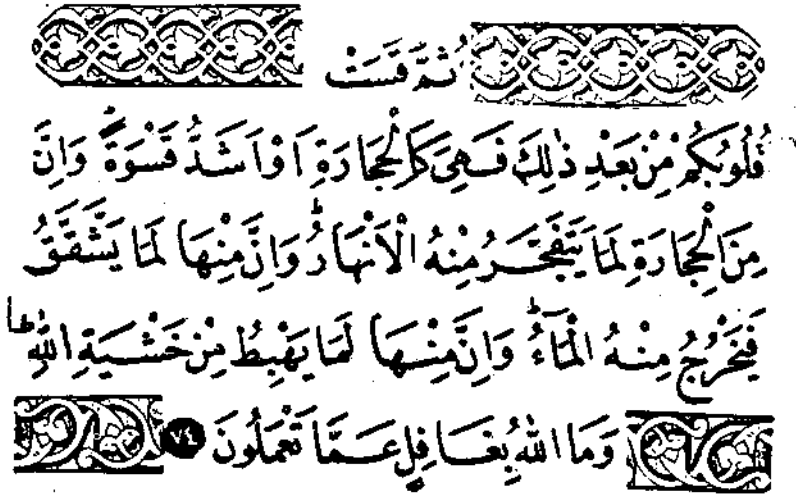 ثُمَّ قَسَتْ
قُلُوبُكُمْ مِنْ بَعْدِ ذٰلِكَ فَهِىَ كَالْحِجَارَةِ اَوْ اَشَدُّ قَسْوَةً ۚ وَاِنَّ
مِنَ الْحِجَارَةِ لَمَا يَتَفَجَّرُ مِنْهُ الْاَنْهَارُ ۚ وَاِنَّ مِنْهَا لَمَا يَشَّقَّقُ
فَيَخْرُجُ مِنْهُ الْمَآءُ ۚ وَاِنَّ مِنْهَا لَمَا يَهْبِطُ مِنْ خَشْيَةِ اللّٰهِ ۗ
وَمَا اللّٰهُ بِغَافِلٍ عَمَّا تَعْمَلُونَ ٧٤